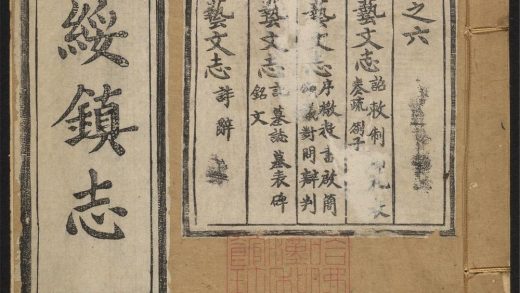 之六
藝文志 詔敕制
奏疏 劄子
藝文志 序檄 書啟簡
議對問辯判
藝文志 記 墓誌墓表碑
銘文
藝文志 詩辭
綏鎮志